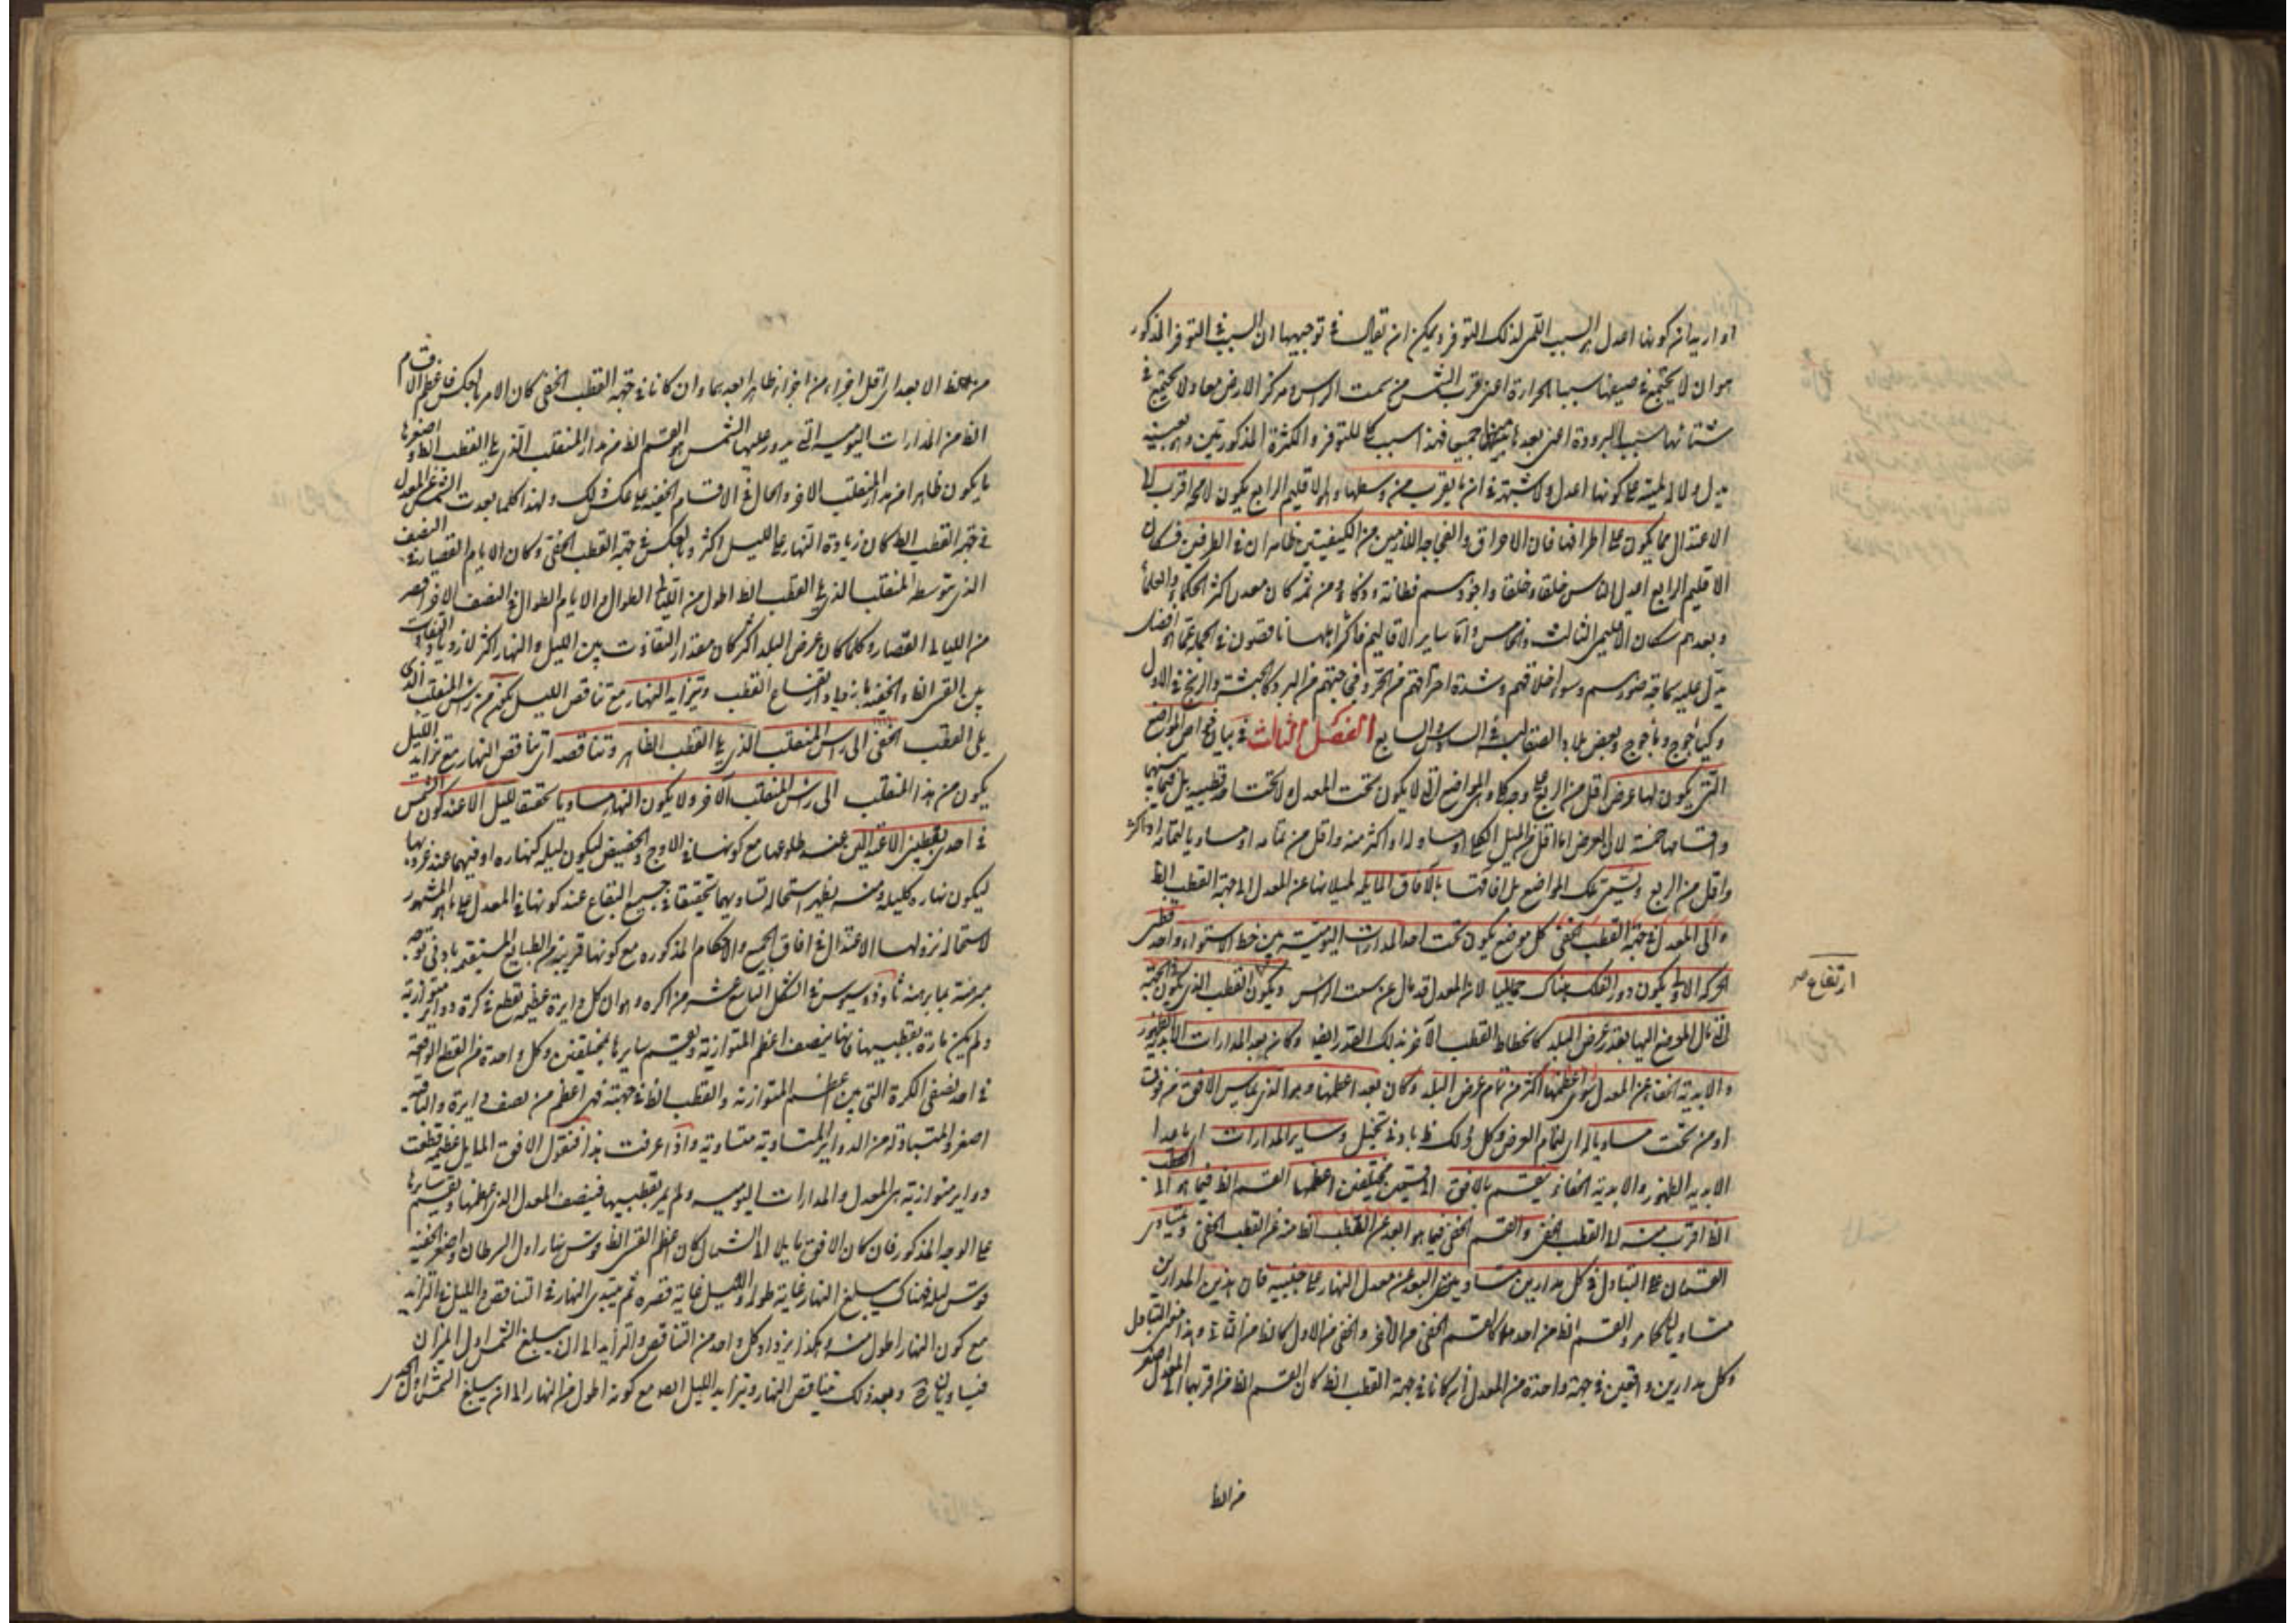 او اريد ان كونها اعدل السبب اللمى لذلك التوفر ويمكن ان يقال فى توجيهها ان السبب فى التوفر المذكور
هو ان لا يجتمع فى صيفها سببا الحرارة اعنى قرب الشمس من سمت الراس ومركز الارض معا ولا يجتمع فى
شتائها سببا البرودة اعنى بعدها جميعا فهذا سبب للتوفر والكثرة المذكورتين وهو بعينه
يدل دلالة لمية على كونها اعدل ولا شبهة فى ان ما يقرب من وسطها وهو الاقليم الرابع يكون لا محالة اقرب الى
الاعتدال مما يكون على اطرافها فان الاحراق والفجاجة اللازمين من الكيفيتين ظاهران فى الطرفين فسكان
الاقليم الرابع اعدل الناس خلقا وخلقا واجودهم فطانة وذكاء ومن ثم كان معدن اكثر الحكماء والعلماء
وبعدهم سكان الاقليمين الثالث والخامس واما ساير الاقاليم فاكثر اهلها ناقصون فى الجبلة عما هو افضل
يدل عليه سماجة صورهم وسوء اخلاقهم وشدة احتراقهم من الحر وفجاجتهم من البرد كالحبشة والزنج فى الاول
وكياجوج وماجوج وبعض بلاد الصقالبة فى السادس والسابع الفصل الثالث فى بيان خواص المواضع
التى يكون لها عرض اقل من الربع وهى المواضع التى لا يكون تحت المعدل ولا تحت احد قطبيه بل فيما بينهما
واقسامها خمسة لان العرض اما اقل من الميل الكلى او مساو له او اكثر منه واقل من تمامه او مساو لتمامه او اكثر
واقل من الربع وتسمى تلك المواضع بل افاقها بالافاق المايلة لميلانها عن المعدل الى جهة القطب الظ
والى المعدل فى جهة القطب الخفى كل موضع يكون تحت احد المدارات اليومية بين خط الاستواء واحد قطبى
الحركة الاولى يكون دور الفلك هناك حمايليا لان المعدل قد مال عن سمت الراس ويكون القطب الذى يكون فى الجهة
التى مال الموضع اليها بقدر عرض البلد كانحطاط القطب الآخر بذلك القدر ايضا وكان بعد المدارات الابدية الظهور
والابدية الخفاء عن المعدل سوى اعظمها اكثر من تمام عرض البلد وكان بعد اعظمها وهو الذى يماس الافق من فوق
او من تحت مساويا له اى لتمام العرض وكل ذلك ظ بادنى تخيل وساير المدارات اى ما عدا
الابدية الظهور والابدية الخفاء ينقسم بالافق الى قسمين مختلفين اعظمها القسم الظ فيما هو الى القطب
الظ اقرب منه الى القطب الخفى والقسم الخفى فيما هو ابعد عن القطب الظ منه عن القطب الخفى ويتساوى
القسمان على التبادل فى كل مدارين متساويى البعد عن معدل النهار على جنبيه فان هذين المدارين
متساويان كما مر والقسم الظ من احدهما كالقسم الخفى من الآخر والخفى من الاول كالظ من الثانى وهذا معنى التبادل
وكل مدارين واقعين فى جهة واحدة من المعدل ان كانا فى جهة القطب الظ كان القسم الظ من اقربهما الى المعدل اصغر
من الظ
ارتفاع صح
من الظ الابعد اى اقل اجزاء من اجزاء ظاهر ابعدهما وان كانا فى جهة القطب الخفى كان الامر بالعكس فاعظم الاقسام
الظ من المدارات اليومية التى يدور عليها الشمس هو القسم الظ من مدار المنقلب الذى يلى القطب الظ واصغرها
ما يكون ظاهرا من مدار المنقلب الآخر والحال فى الاقسام الخفية على عكس ذلك ولهذا كلما بعدت الشمس عن المعدل
فى جهة القطب الظ كان زيادة النهار على الليل اكثر وبالعكس فى جهة القطب الخفى وكان الايام القصار فى النصف
الذى يتوسطه المنقلب الذى يلى القطب الظ اطول من الليالى الطوال والايام الطوال فى النصف الآخر اقصر
من الليالى القصار وكلما كان عرض البلد اكثر كان مقدار التفاوت بين الليل والنهار اكثر لازدياد التفاوت
بين القسى الظاهرة والخفية بازدياد ارتفاع القطب وتزايد النهار مع تناقص الليل يكون من راس المنقلب الذى
يلى القطب الخفى الى راس المنقلب الذى يلى القطب الظاهر وتناقصه اى تناقص النهار مع تزايد الليل
يكون من هذا المنقلب الى راس المنقلب الآخر ولا يكون النهار مساويا تحقيقا لليل الا عند كون الشمس
فى احدى نقطتى الاعتدالين عند طلوعها مع كونها فى الاوج والحضيض ليكون ليله كنهاره او فيهما عند غروبها
ليكون نهاره كليله ومنه يظهر استحالة تساويهما تحقيقا فى جميع البقاع عند كونها فى المعدل على ما هو المشهور
لاستحالة نزولها الاعتدال فى افاق الجميع والاحكام المذكورة مع كونها قريبة من الطبايع المستقيمة بادنى توجه
مبرهنة بما برهنه ثاوذوسيوس فى الشكل التاسع عشر من اكره وهو ان كل دايرة عظيمة تقطع فى كرة دواير متوازية
ولم يكن مارة بقطبيها فانها ينصف اعظم المتوازية ويقسم سايرها بمختلفين وكل واحدة من القطع الواقعة
فى احد نصفى الكرة التى بين اعظم المتوازية والقطب الظ فى جهته فهى اعظم من نصف دايرة والباقية
اصغر والمتبادلة من الدواير المتساوية متساوية واذا عرفت هذا فنقول الافق المايل عظيمة قطعت
دواير متوازية هى المعدل والمدارات اليومية ولم يمر بقطبيها فينصف المعدل الذى هو اعظمها ويقسم سايرها
على الوجه المذكور فان كان الافق مايلا الى الشمال كان اعظم القسى الظ قوس نهار اول السرطان واصغر الخفية
قوس ليله فهناك يبلغ النهار غاية طوله والليل غاية قصره ثم يبتدى النهار فى التناقص والليل فى التزايد
مع كون النهار اطول منه وهكذا يزداد كل واحد من التناقص والتزايد الى ان يبلغ الشمس اول الميزان
فيتساويان وبعد ذلك يتناقص النهار ويتزايد الليل ايضا مع كونه اطول من النهار الى ان يبلغ الشمس اول الجدى